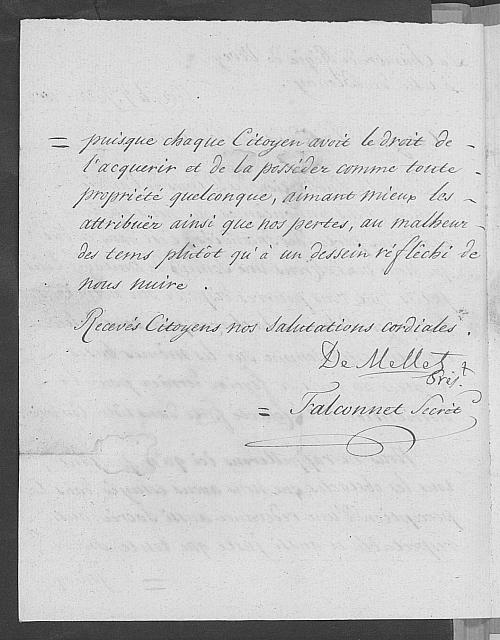 = puisque chaque Citoyen avoit le droit de -
l'acquerir et de la posséder comme toute -
propriété quelconque, aimant mieux les -
attribuër ainsi que nos pertes, au malheur -
des tems plûtôt qu'à un dessein réflêchi de
nous nuire.
Recevés Citoyens nos Salutations cordiales.
De Mellet
Prest
= Falconnet Secrét